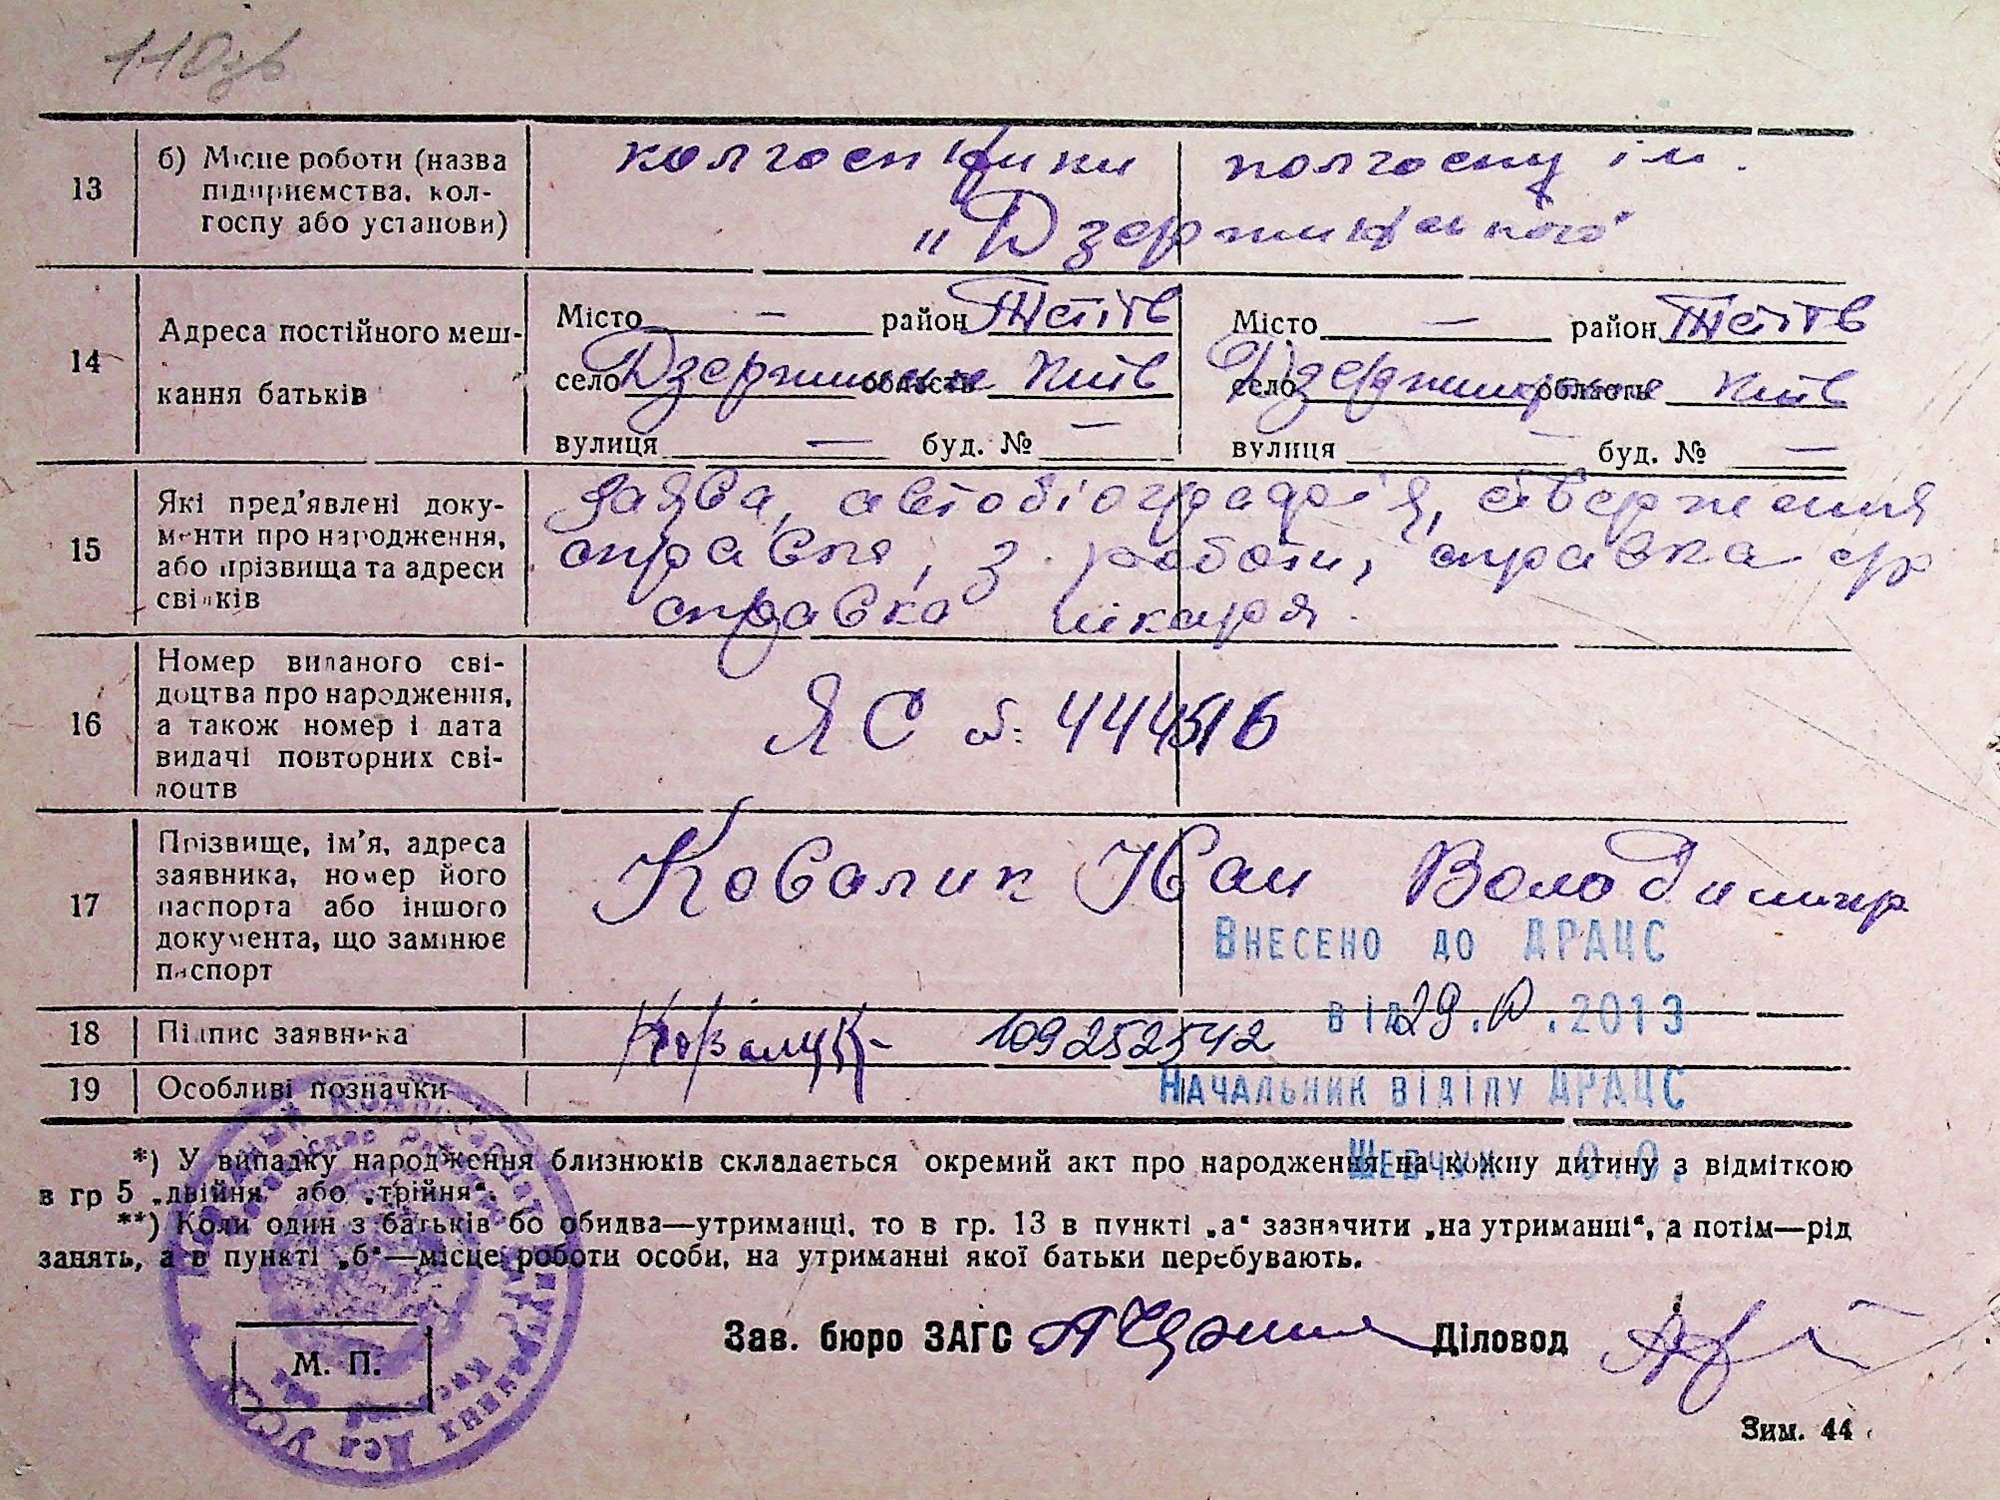 13
б) Місце роботи (назва
підприємства, кол-
госпу або установи)
колгоспники колгоспу ім.
„Дзержинського"
14
Адреса постійного меш-
кання батьків
Місто — район Тетіїв
село Дзержинське область Київ
вулиця — буд. № —
Місто — район Тетіїв
село Дзержинське область Київ
вулиця — буд. № —
15
Які пред'явлені доку-
менти про народження,
або прізвища та адреси
свідків
Заява, автобіографія, ствердження
справка, з роботи, справка
справка лікаря.
16
Номер виданого сві-
доцтва про народження,
а також номер і дата
видачі повторних сві-
доцтв
ЯС 444516
17
Прізвище, ім'я, адреса
заявника, номер його
паспорта або іншого
документа, що замінює
паспорт
Ковалик Іван Володимир
Внесено до ДРАЦС
від 29. .2013
18
Підпис заявника
Ковалик 109252542
19
Особливі позначки
Начальник відділу ДРАЦС
Шевчук О.О.
*) У випадку народження близнюків складається окремий акт про народження на кожну дитину з відміткою
в гр 5 „двійня" або „трійня".
**) Коли один з батьків бо обидва—утриманці, то в гр. 13 в пункті „а" зазначити „на утриманні", а потім—рід
занять, а в пункті „б"—місце роботи особи, на утриманні якої батьки перебувають.
М. П.
Зав. бюро ЗАГС Діловод
Зим. 44